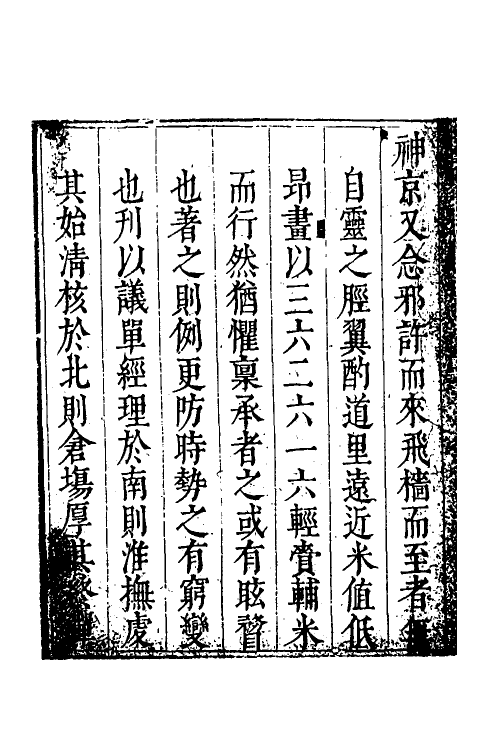 神京又念邪許而來飛檣而至者
自靈之脛翼酌道里遠近米值低
昂畫以三六二六一六輕賫輔米
而行然猶懼稟承者之或有眩瞀
也著之則例更防時勢之有窮變
也刊以議單經理於南則淮撫虔
其始清核於北則倉場厚其